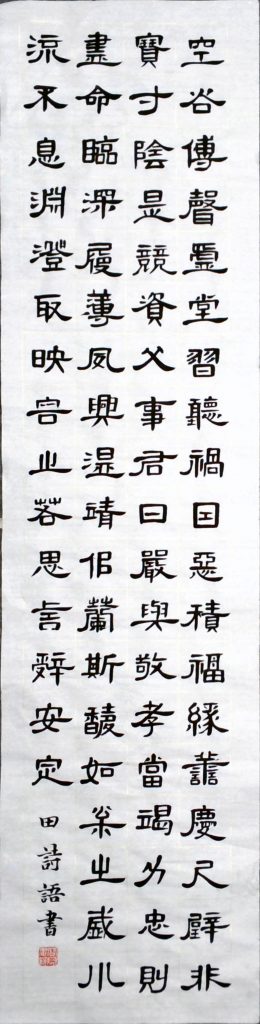 空谷傳聲虛堂習聽禍因惡積福緣善慶尺璧非
寶寸陰是競資父事君曰嚴與敬孝當竭力忠則
盡命臨深履薄夙興溫靖佀蘭斯馨如枀之盛川
流不息淵澄取映容止若思言辭安定
田詩語書